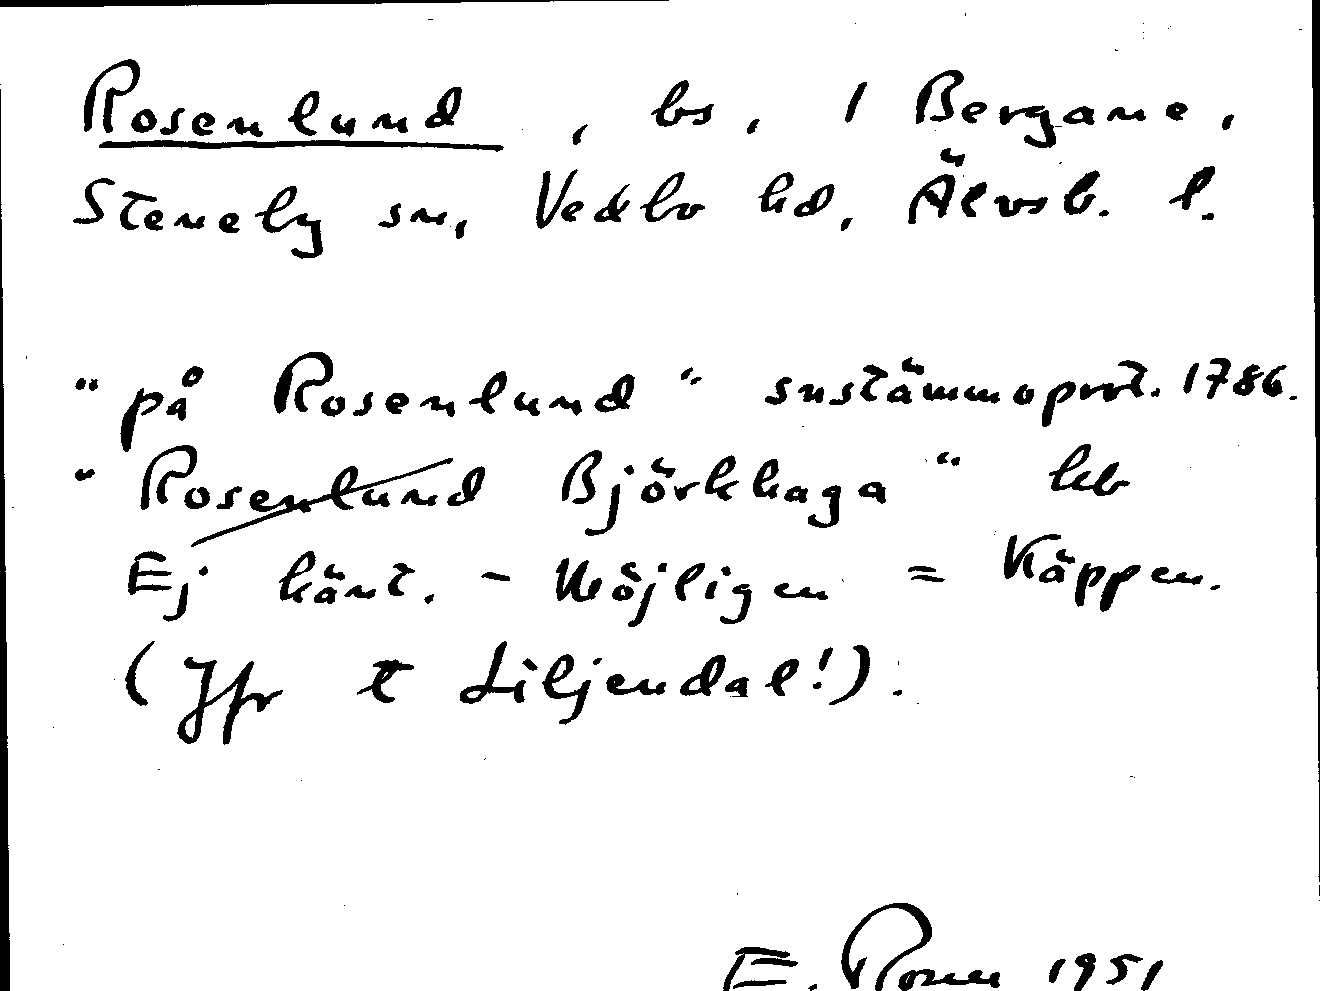 Rosenlund, bs, 1 Bergane,
Steneby sn, Vedbo hd, Älvsb. l.
"på Rosenlund" snstämmoprot. 1786.
"Rosenlund Björkhaga" hb
Ej känt. - Möjligen = Käppen.
(Jfr t Liljendal!).
E. Rosell 1951